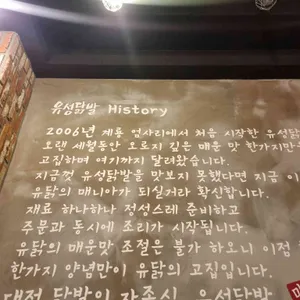 유성닭발 History
2006년 계룡 엄사리에서 처음 시작한 유성닭
오랜 세월동안 오로지 깊은 매운 맛 한가지만을
고집하며 여기까지 달려왔습니다.
지금껏 유성닭발을 맛보지 못했다면 지금 이
유닭의 매니아가 되실거라 확신합니다.
재료 하나하나 정성스레 준비하고
주문과 동시에 조리가 시작됩니다.
유닭의 매운맛 조절은 불가 하오니 이점
한가지 양념만이 유닭의 고집입니다.
대전 닭발의 자존심 유성닭발